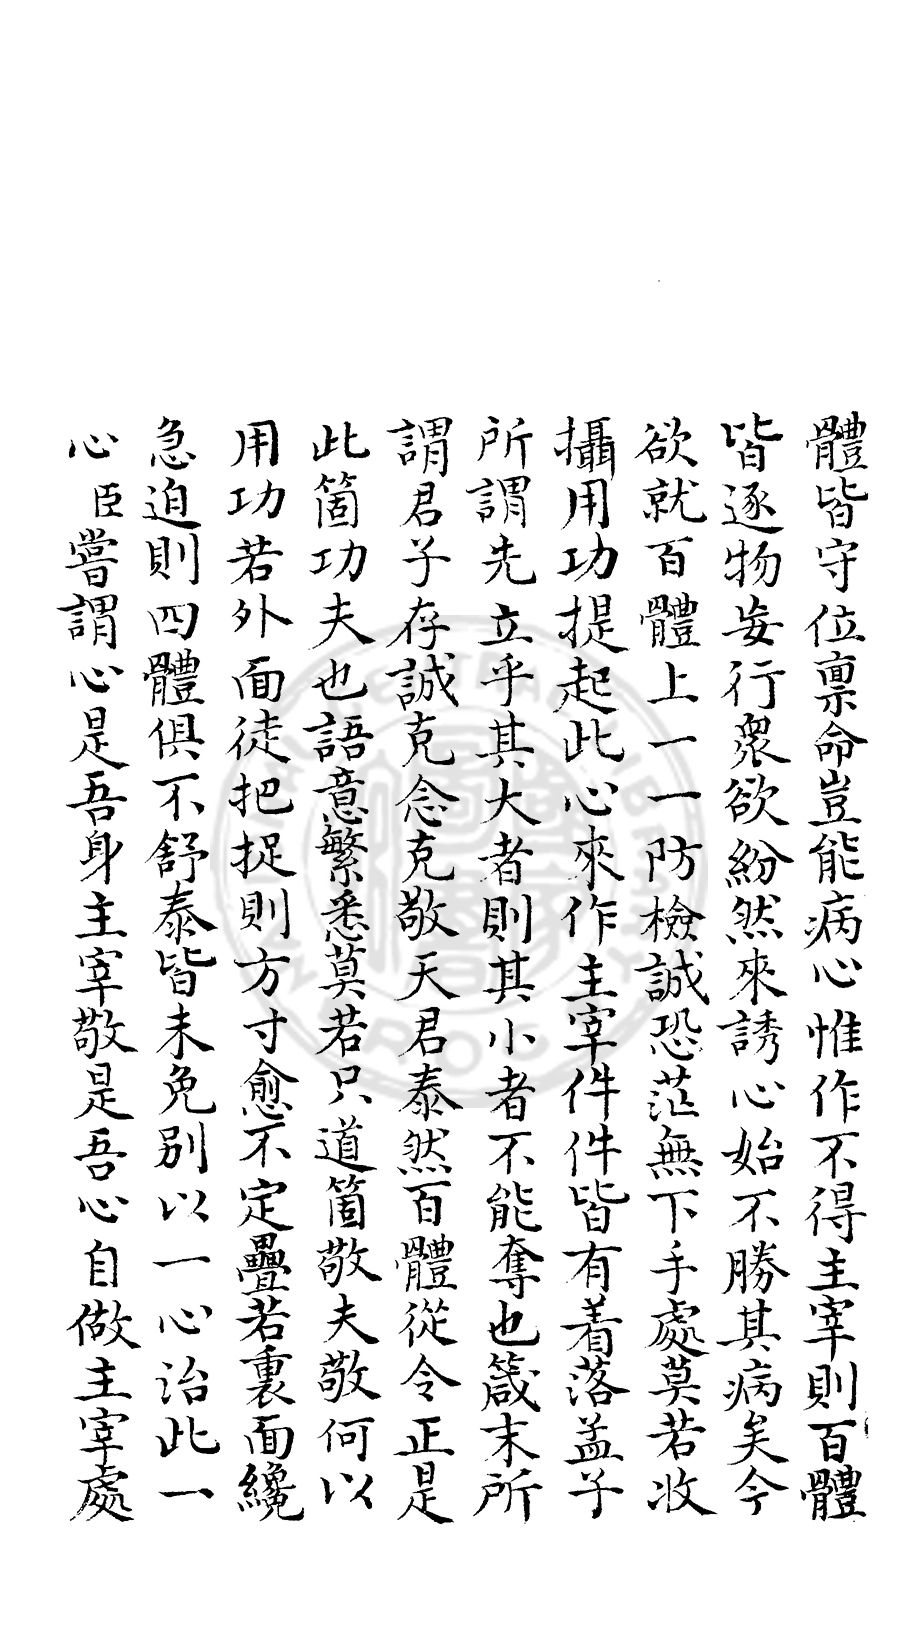 體皆守位稟命豈能病心惟作不得主宰則百體
皆逐物妄行衆欲紛然來誘心始不勝其病矣今
欲就百體上一一防檢誠恐茫無下手處莫若收
攝用功提起此心來作主宰件件皆有着落孟子
所謂先立乎其大者則其小者不能奪也箴末所
謂君子存誠克念克敬天君泰然百體從令正是
此箇功夫也語意繁悉莫若只道箇敬夫敬何以
用功若外面徒把捉則方寸愈不定疊若裏面纔
急迫則四體俱不舒泰皆未免別以一心治此一
心臣嘗謂心是吾身主宰敬是吾心自做主宰處